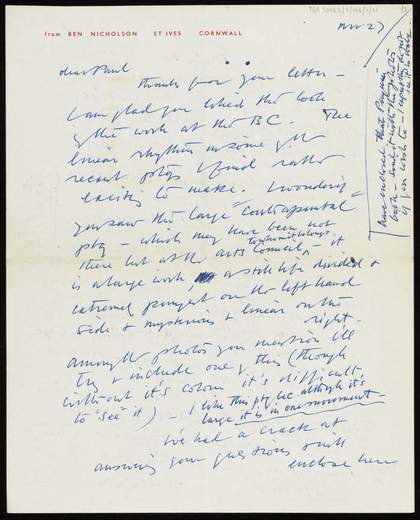 from BEN NICHOLSON ST IVES CORNWALL
Nov 27
dear Paul
thanks for your letter –
I am glad you liked the look
of the work at the B C. The
linear rhythm in some of
recent ptgs I find rather
exciting to make. I wonder if
you saw the large "contrapuntal"
ptg – which may have been not
there but at the Arts Council – it
to whom it belongs
is a large work, a still life divided &
extremely pungent on the left hand
side & mysterious & linear on the
right.
Among the photos you mention I'll
try & include one of this (though
without it's colour it's difficult
to "see" it) – I like this ptg bec. although it's
large it is in one movement –
I've had a crack at
answering your questions & will
enclose here
have enclosed that
with the photos
if you wish to –